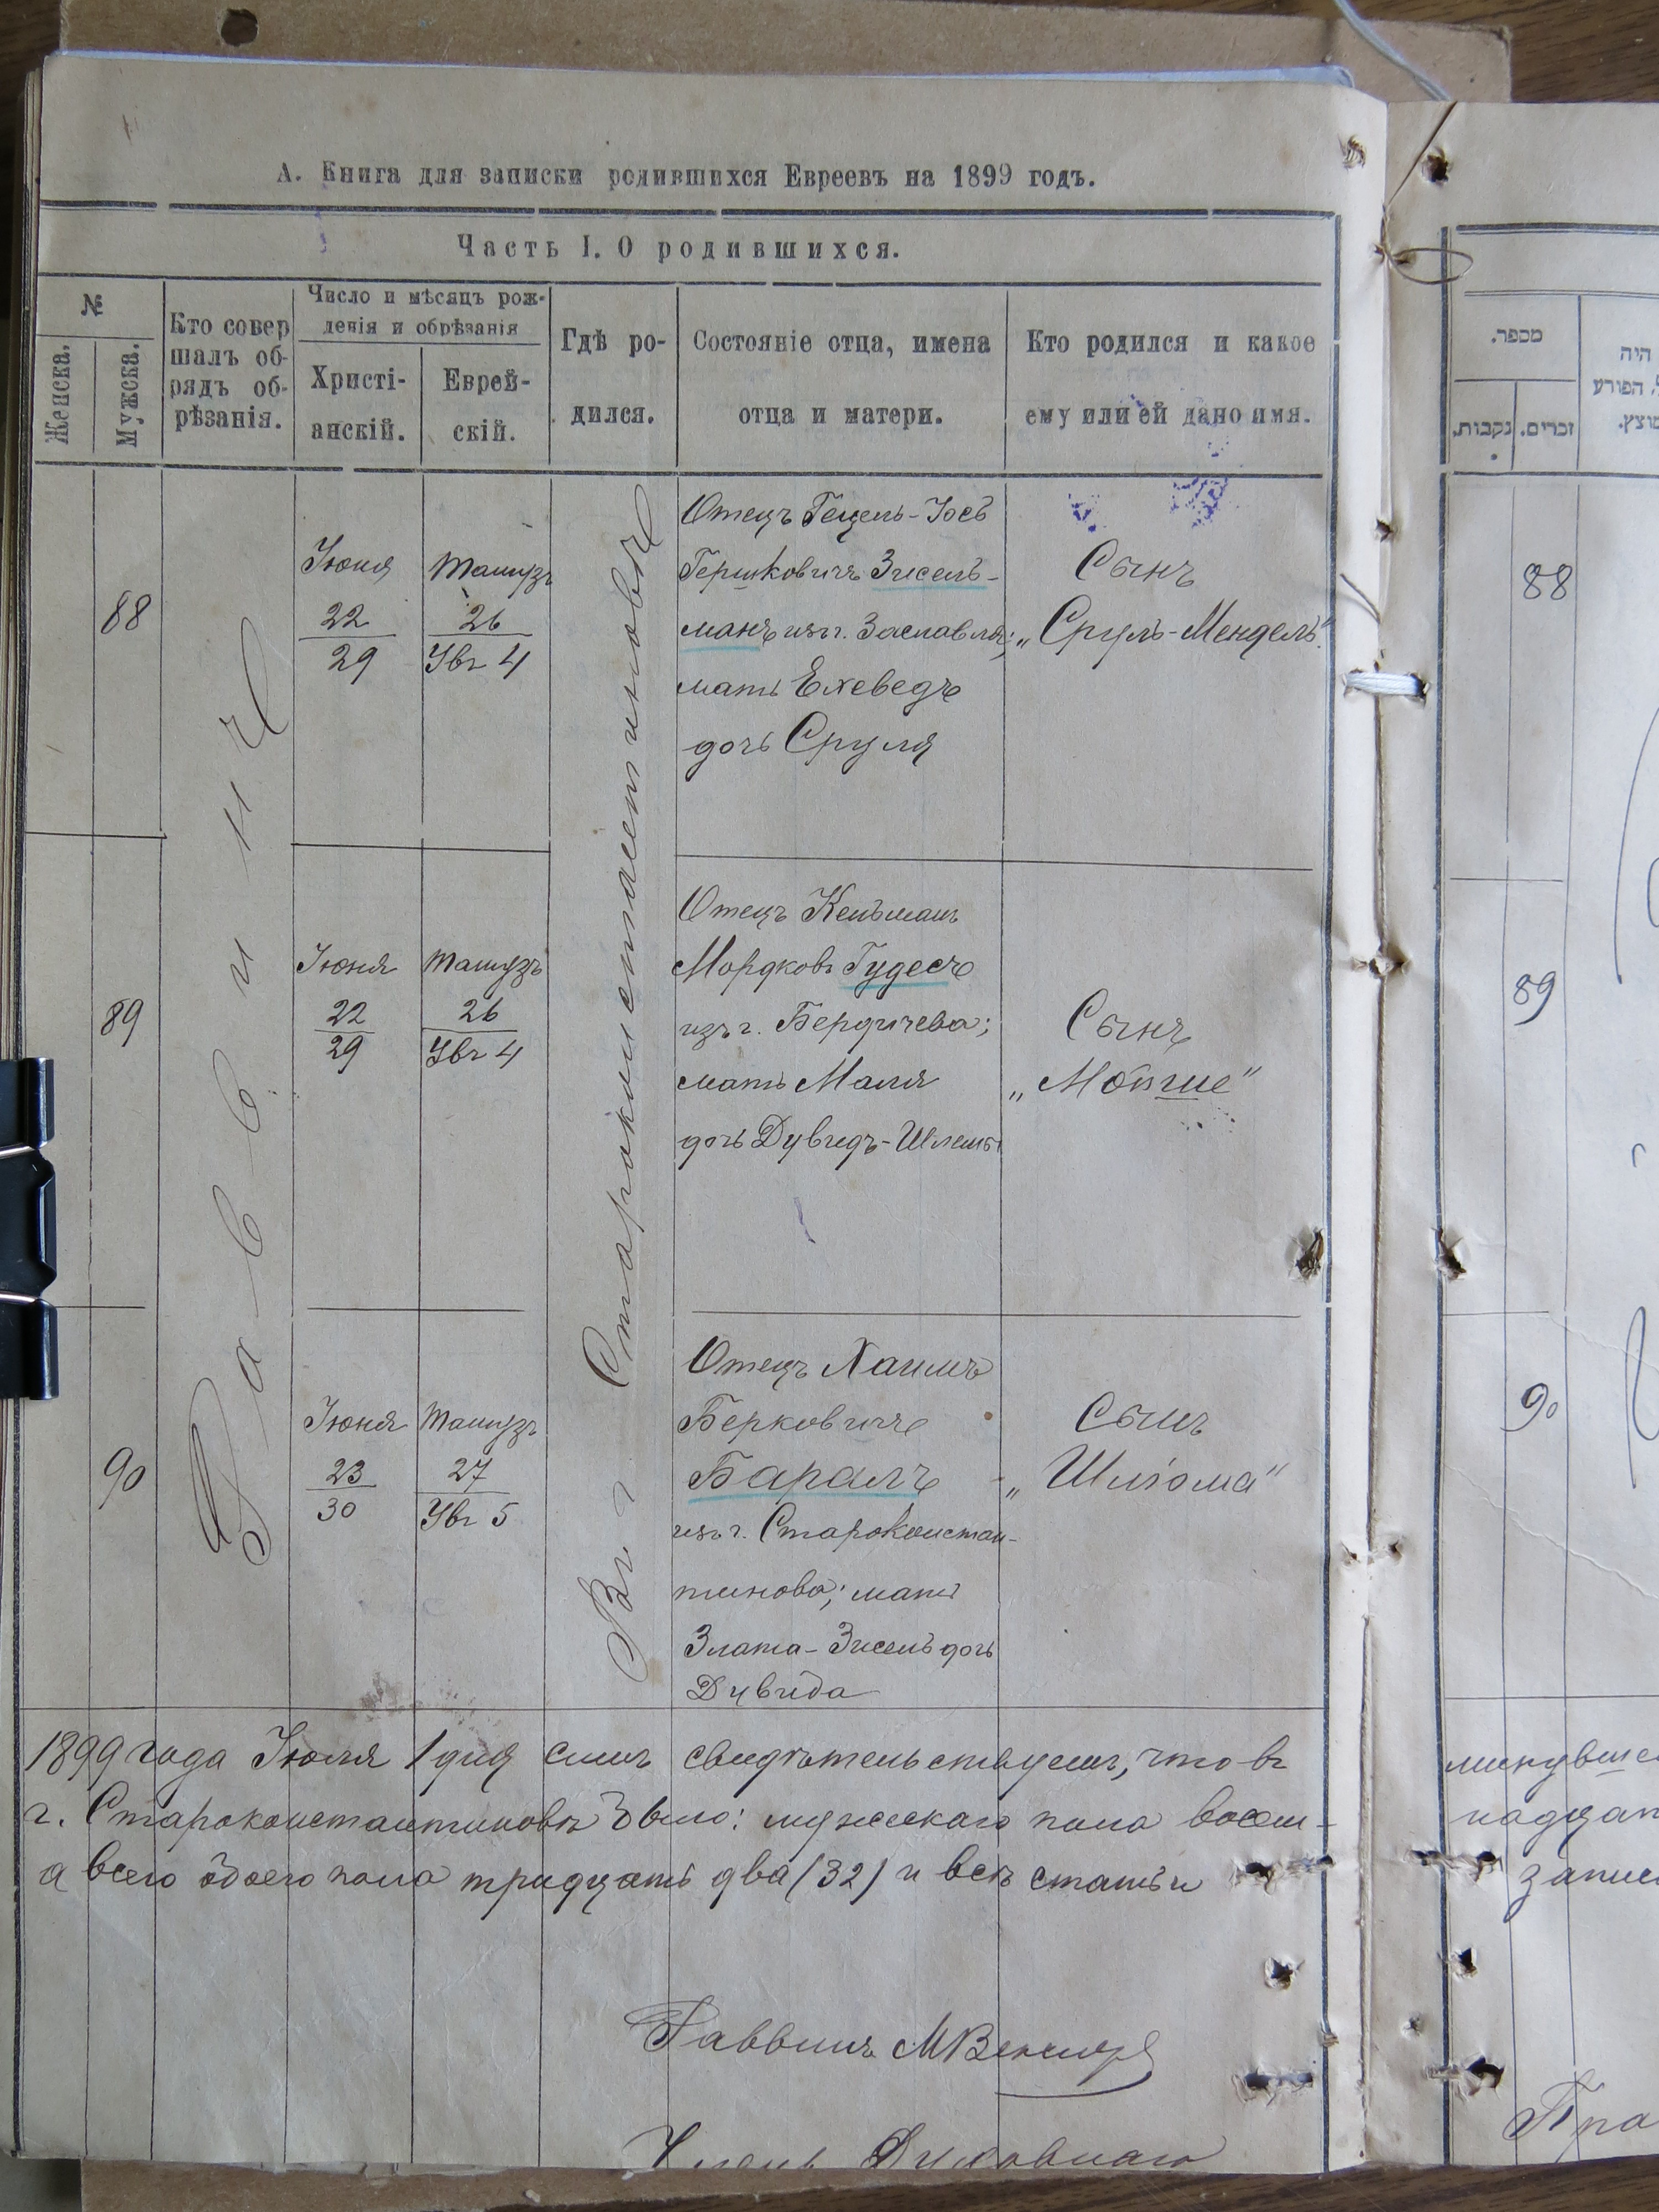 А. Книга для записки родившихся Евреевъ на 1899 годъ.
Часть I. О родившихся.
№
Женска.
Мужска.
Кто совер
шалъ об-
рядъ об-
рѣзанія.
Число и мѣсяцъ рож-
денія и обрѣзанія
Христі-
анскій.
Еврей-
скій.
Гдѣ ро-
дился.
Состояніе отца, имена
отца и матери.
Кто родился и какое
ему или ей дано имя.
Раввинъ
Въ г. Староконстантиновѣ
88
Іюня
22
29
Тамузъ
26
Увъ 4
Отецъ Гецель-Іосъ
Гершковичъ Зисель-
манъ изъ г. Заславля;
мать Ехеведъ
дочь Сруля
Сынъ
„Сруль-Мендель"
89
Іюня
22
29
Тамузъ
26
Увъ 4
Отецъ Кельманъ
Мордковъ Гудесъ
изъ г. Бердичева;
мать Маля
дочь Дувидъ-Шлемы
Сынъ
„Мойше"
90
Іюня
23
30
Тамузъ
27
Увъ 5
Отецъ Хаимъ
Берковичъ
Баралъ
изъ г. Староконстан-
тинова; мать
Злата-Зисель дочь
Дувида
Сынъ
„Шліома"
1899 года Іюля 1 дня симъ свидѣтельствуемъ, что въ
г. Староконстантиновѣ было: мужескаго пола восем-
а всего обоего пола тридцать два (32) и всѣ статьи
Раввинъ
Членъ Духовнаго
מספר.
נקבות.
זכרים.
היה
הפורע
88
89
90
минувше
надцат
запис
Пра